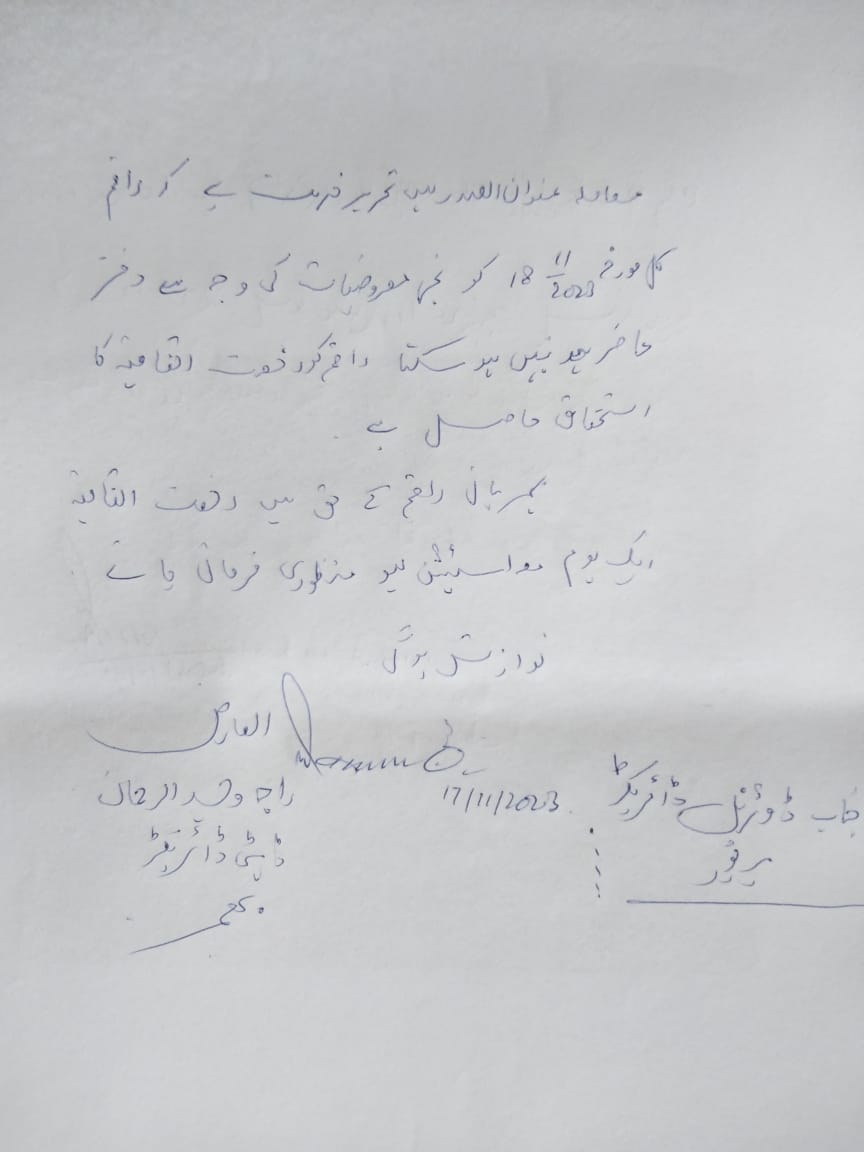 معاملہ عنوان الصدر میں تحریر خدمت ہے کہ راقم
کل مورخہ 18 11/2023 کو نجی معروضیات کی وجہ سے دفتر
حاضر نہیں ہو سکتا راقم کو رخصت اتفاقیہ کا
استحقاق حاصل ہے
بمہربانی راقم کے حق میں رخصت اتفاقیہ
ایک یوم معہ اسٹیشن لیو منظوری فرمائی جائے
نوازش ہوگی
العارض
17/11/2023
راجہ الرحمان
ڈپٹی ڈائریکٹر
بھمبر
جناب ڈویژنل ڈائریکٹر
میرپور